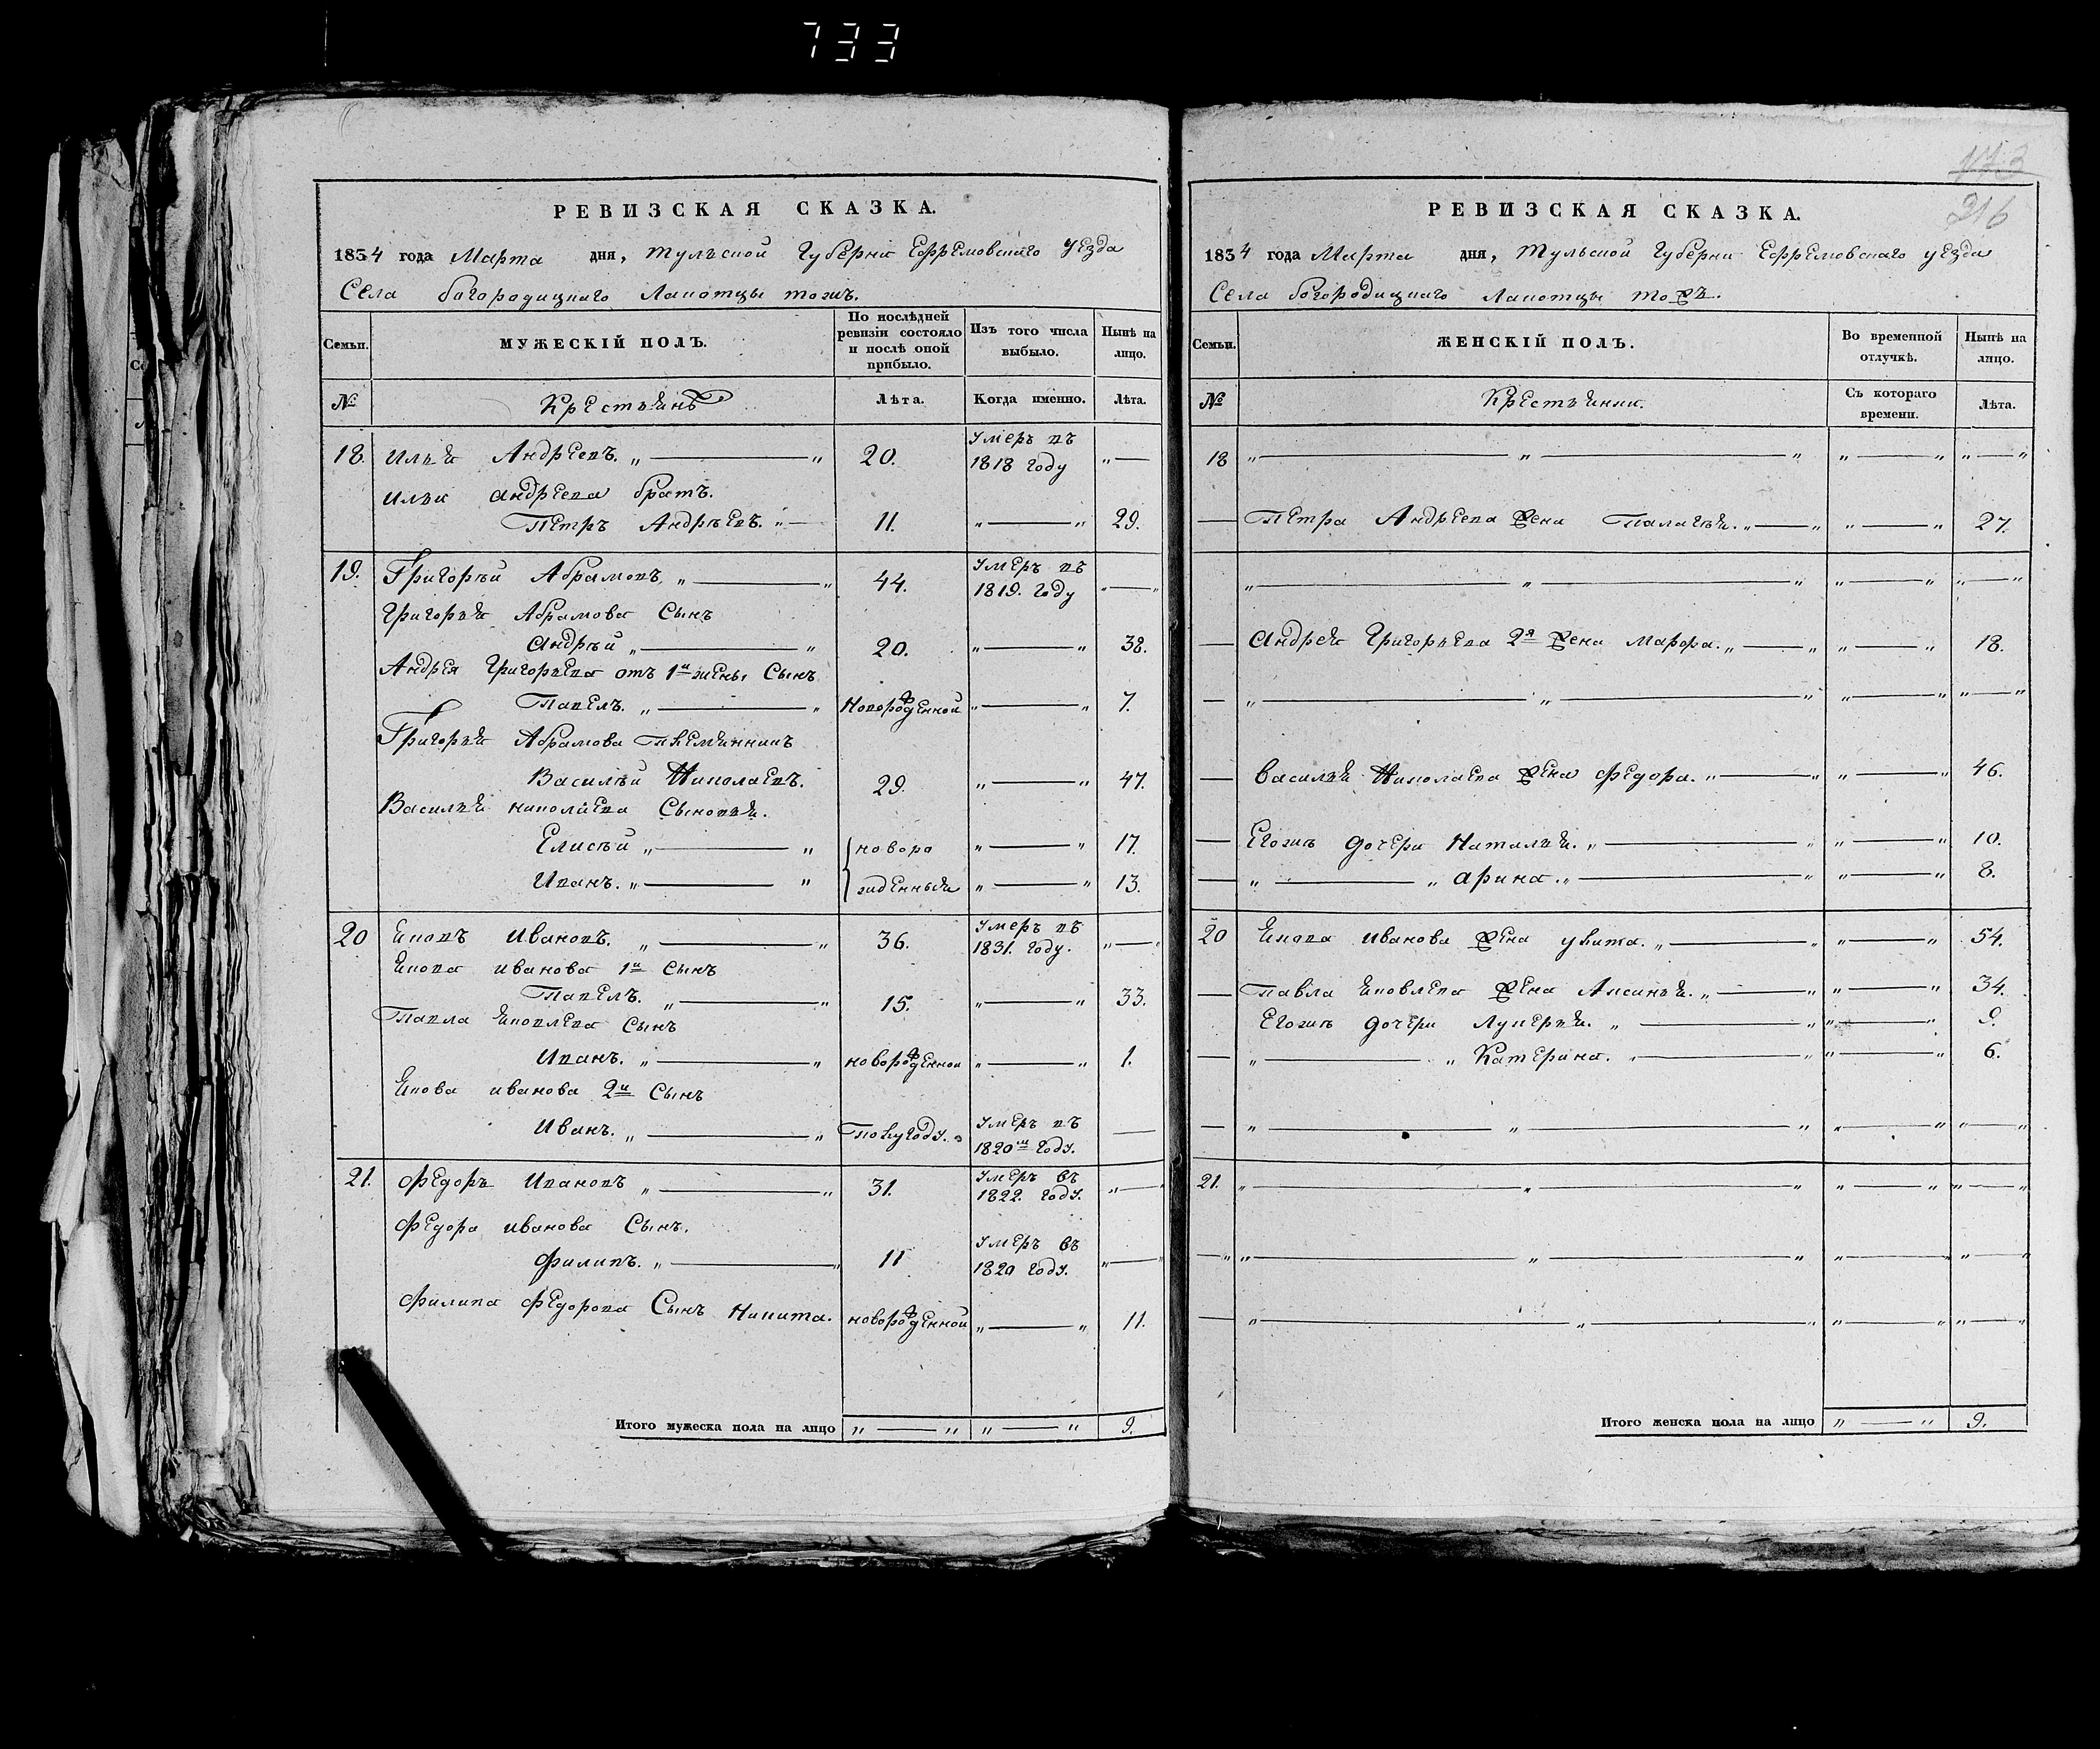 733
РЕВИЗСКАЯ СКАЗКА.
1834 года Марта дня, Тульской Губерни Ефремовскаго уезда
Села богородицкаго Лапотцы тожъ.
Семьи.
МУЖЕСКІЙ ПОЛЪ.
По послѣдней ревизіи состояло и послѣ оной прибыло.
Изъ того числа выбыло.
Нынѣ на лицо.
№
Крестьянъ
Лѣта.
Когда именно.
Лѣта.
18. Илья Андреевъ. „ — „ 20. Умеръ въ 1818 году „ —
Ильи андреева братъ.
Петръ Андрѣевъ. „ — 11. „ — „ 29.
19. Григорѣй Абрамовъ „ — „ 44. Умеръ въ 1819. году „ — „
Григорья Абрамова Сынъ
Андрѣй „ — „ 20. „ — „ 38.
Андрея Григорьева отъ 1й жены Сынъ
Павелъ. „ — „ Новорожденной „ — „ 7.
Григорья Абрамова Племянникъ
Василѣй Николаевъ. 29. „ — „ 47.
Василья николаева Сыновья.
Елисѣй „ — „ новоро „ — „ 17.
Иванъ. „ — „ жденныя „ — „ 13.
20 Яковъ Ивановъ. „ — „ 36. Умеръ въ 1831. году. „ — „
Якова иванова 1й сынъ
Павелъ. „ — „ 15. „ — „ 33.
Павла Яковлева сынъ
Иванъ. „ — „ новорожденной „ — „ 1.
Якова иванова 2й Сынъ
Иванъ. „ — „ Полугоду. Умеръ въ 1820м году. —
21. Федоръ Ивановъ „ — „ 31. Умеръ въ 1822. году. „ — „
Федора иванова Сынъ.
Филипъ. „ — „ 11 Умеръ въ 1820 году. „ — „
Филипа Федорова Сынъ Никита. новорожденной „ — „ 11.
Итого мужеска пола на лицо „ — „ „ — „ 9.
173
216
РЕВИЗСКАЯ СКАЗКА.
1834 года Марта дня, Тульской Губерни Ефремовскаго уезда
Села богородицкаго Лапотцы тожъ.
Семьи.
ЖЕНСКІЙ ПОЛЪ.
Во временной отлучкѣ.
Нынѣ на лицо.
№
Крестьянки.
Съ котораго времени.
Лѣта.
18 „ — „ — „ „ — „ „ — „
— Петра Андреева жена Палагѣя. „ — „ „ — „ 27.
„ — „ — „ „ — „ „ — „
— Андрея Григорьева 2я жена Марфа. „ — „ „ — „ 18.
— „ — „ — „ „ — „ „ — „
— Василья Николаева жена Федора. „ — „ „ — „ 46.
— Егожъ дочери Наталья. „ — „ „ — „ 10.
— „ — „ арина. „ — „ „ — „ 8.
20 Якова иванова жена улита. „ — „ „ — „ 54.
— Павла Яковлева жена Аксинья. „ — „ „ — „ 34.
Егожъ дочери Лукерья. „ — „ „ — „ 9.
— „ — „ Катерина. „ — „ „ — „ 6.
— „ — „ — „ „ — „ „ — „
21. „ — „ — „ „ — „ „ — „
— „ „ — „ — „ „ — „ „ — „
— „ — „ — „ „ — „ „ — „
Итого женска пола на лицо „ — „ 9.